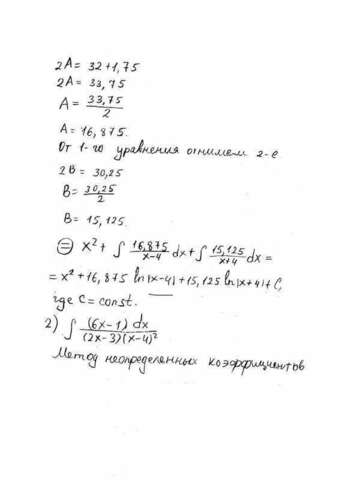 2A = 32 + 1,75
2A = 33,75
A = 33,75 / 2
A = 16,875.
От 1-го уравнения отнимем 2-е
2B = 30,25
B = 30,25 / 2
B = 15,125.
⊜ x² + ∫ 16,875 / x-4 dx + ∫ 15,125 / x+4 dx =
= x² + 16,875 ln|x-4| + 15,125 ln|x+4| + C,
где C = const.
2) ∫ (6x-1) dx / (2x-3)(x-4)²
Метод неопределенных коэффициентов